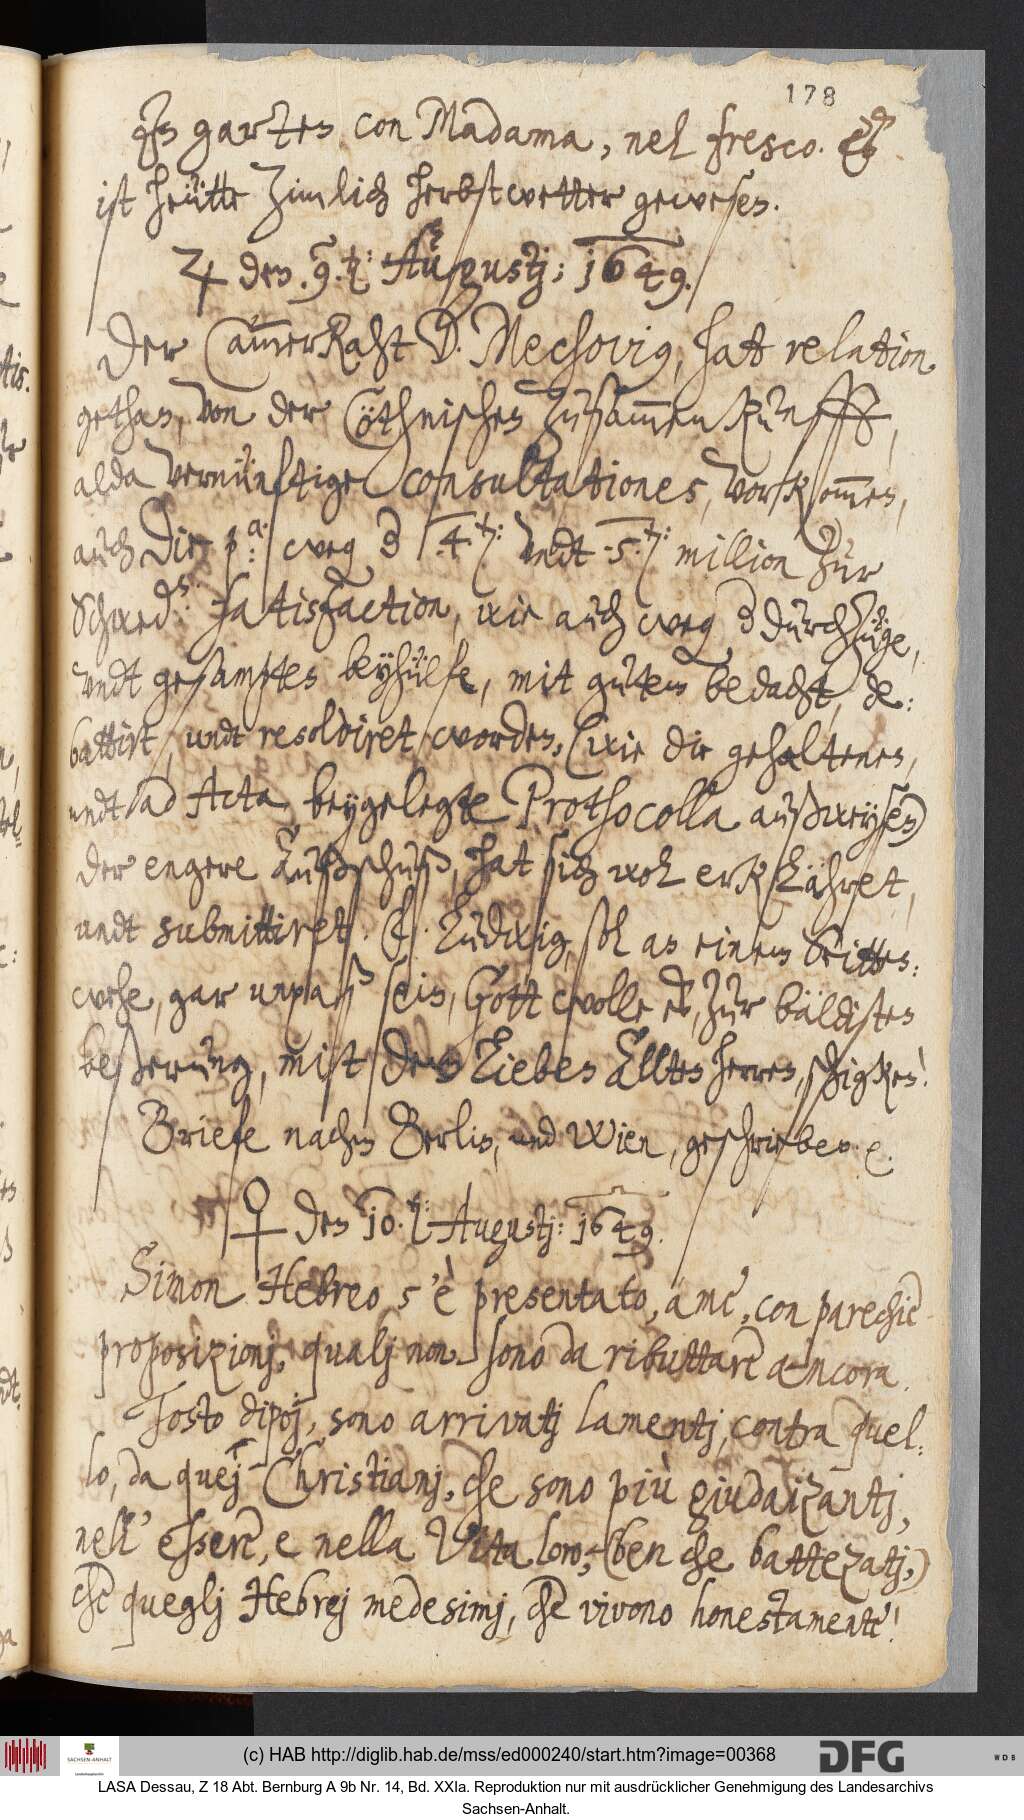 178
Jm garten con Madama, nel fresco. Es
ist heütte Zimlich herbstwetter gewesen.
♃ den 9. t: Augustj: 1649.
Der CammerRaht D. Mechovius, hat relation
gethan, von der Cöthnischen ZusammenKunfft,
alda vernünftige consultationes, vorkommen,
auch die p.a: weg 3 4. t: undt 5. t: million zur
Schwed: satisfaction, wie auch weg durchZüge,
undt gesampten beyhülfe, mit gutem bedacht, de:
battirt, undt resolviret worden, (wie die gehaltenen,
undt ad Acta beygelegte Prothocolla außweysen)
der engere Außschuß, hat sich wol erklähret,
undt submittiret. F. Ludwig, sol an einem Seitten:
wehe, gar unpaß sein, Gott wolle es, zur bäldisten
beßerung, mitt dem Lieben Alltten Herren, schigken!
Briefe nacher Berlin, und Wien, geschrieben.
♀ den 10. t: Augustj: 1649.
Simon Hebreo s'è presentato, a me, con parechie
proposizionj, qualj non sono da ributtare ancora.
Tosto dipoj, sono arrivatj lamentj, contra quel:
lo, da quej Christianj, che sono più giudaizantj,
nell' essere, e nella vita loro, (ben che battezatj,)
che queglj Hebrej medesimj, che vivono honestamente!
(c) HAB http://diglib.hab.de/mss/ed000240/start.htm?image=00368
SACHSEN-ANHALT
DFG
WDB
LASA Dessau, Z 18 Abt. Bernburg A 9b Nr. 14, Bd. XXIa. Reproduktion nur mit ausdrücklicher Genehmigung des Landesarchivs
Sachsen-Anhalt.